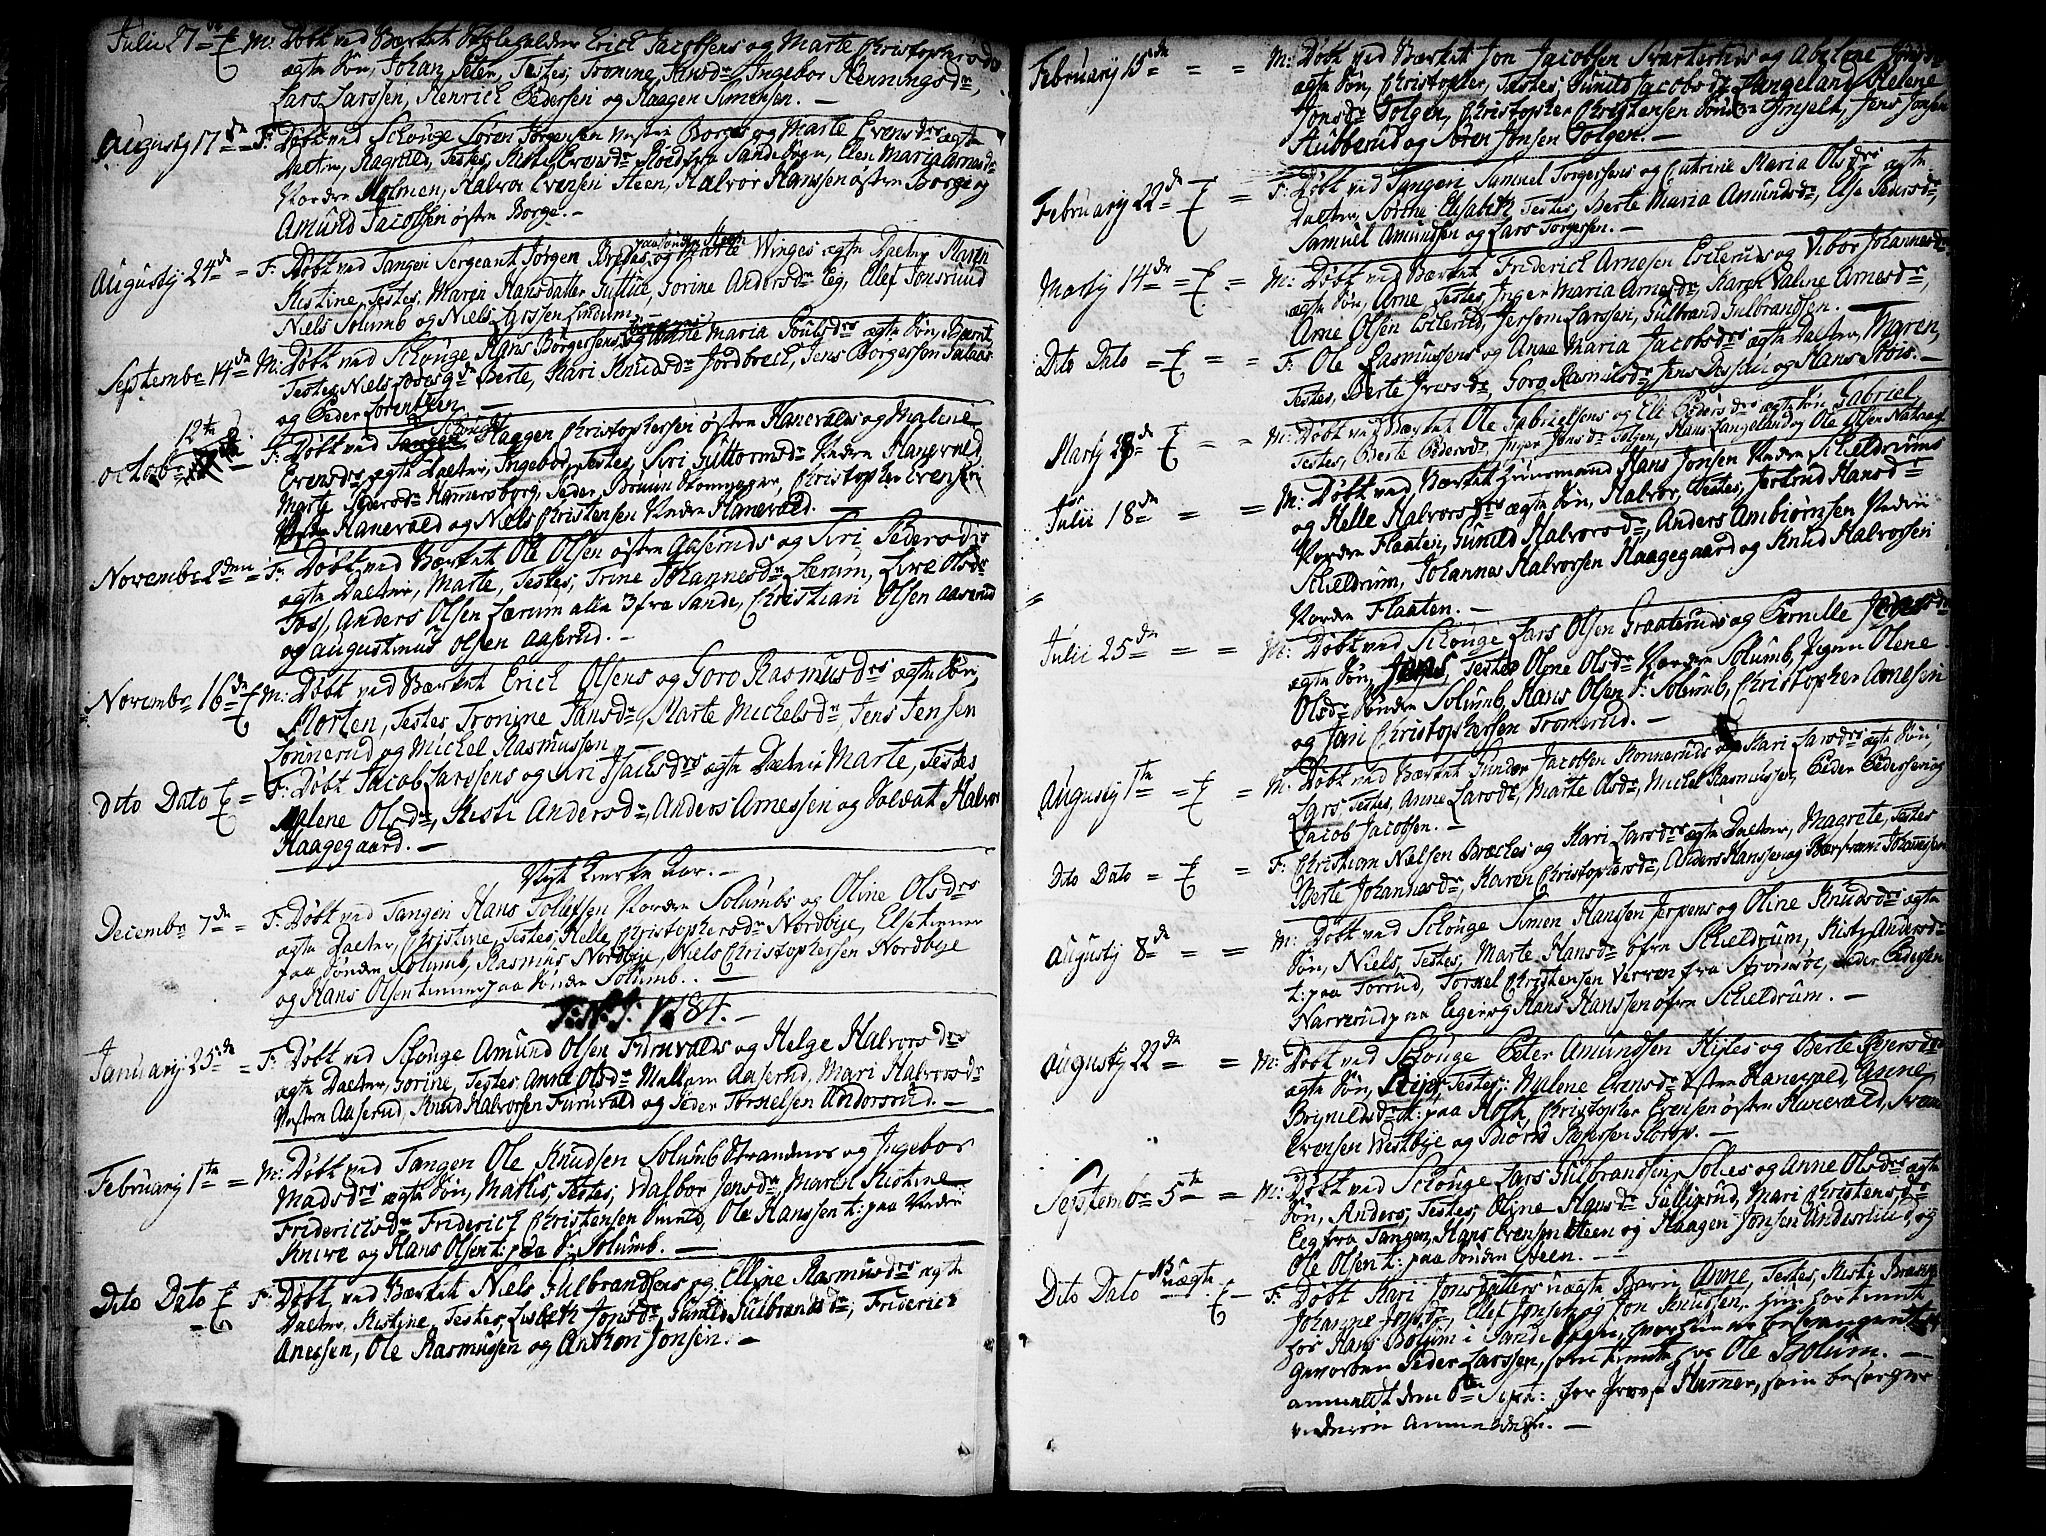 Julii 27de M: Døbt ved Værket Erich Jacobsens og Marte Christophersdr
ægte Søn, Johan Peter, Testes, Tronine Jansdr Ingebor Henningsdr,
Lars Larssen, Henrich Pedersen og Haagen Simensen. —
Augusty 17de = F: Døbt ved Schouge Søren Jørgensen Vestre Borges og Marte Evensdrs ægte
Datter, Ragnild, Testes, Kisti Evensdr fra Sande Sogn, Elen Maria Arnesdr
Nordre Holmen, Halvor Evensen Steen, Halvor Hanssen østre Borge og
Amund Jacobsen østre Borge. —
paa Søndre
Augusty 24de = F: Døbt ved Tangen Sergeant Jørgen og Marte Winges ægte Datter Maren
Kistine, Testes, Maren Hansdatter Sorine Andersdr Eeg, Elef Jonsrud
Niels Solumb og Niels Larssen Lindum. —
Septembr 14de M: Døbt ved Schouge Hans Borgersens og Maria Poulsdrs ægte Søn,
Testes, Niels Berte, Kari Knudsdr Jordbrech, Jens Borgersen
og Peder Lorentsen —
Schouge
12te
Octobr F: Døbt ved Haagen Christophersen østre Hanevalds og Malene
Evensdrs ægte Datter, Ingebor, Testes, Siri Guttormsdr Nedre Hanevald,
Marte Hamersborg, Peder Christopher Evensen
Hanevald og Niels Christensen Nedre Hanevald. —
Novembr 2den = F: Døbt ved Værket Ole Olsen østre Aaseruds og Siri Pedersdrs
ægte Datter, Marte, Testes, Trine Johannesdr Lærum, Live Olsdr
Foss, Anders Olsen Lærum alle 3 fra Sande, Christian Olsen Aaserud
og Augustinus Olsen Aaserud. —
Novembr 16de M: Døbt ved Værket Erich Olsens og Goro Rasmusdrs ægte Søn,
Morten, Testes Tronine Jansdr, Marte Michelsdr, Jens Jensen
Lonnerud og Michel Rasmussen —
Dito Dato = F: Døbt Jacob Larssens og Siri ægte Datter Marte, Testes
Malene Olsdr, Kisti Andersdr, Anders Arnessen og Soldat Halvor
Haagegaard. —
Nyt Kirke Aar. —
Decembr 7de = F: Døbt ved Tangen Hans Tollefsen Nordre Solumbs og Oline Olsdrs
ægte Datter, Christine, Testes, Helle Christophersdr Nordbye, Else tienner
paa Søndre Solumb, Rasmus Nordbye, Niels Christophersen Nordbye
og Hans Olsen tienner paa Søndre Solumb. —
1784. —
January 25de = F: Døbt ved Schouge Amund Olsen Furuvalds og Helge Halvorsdrs
ægte Datter, Sorine, Testes, Anne Olsdr Mellom Aaserud, Mari Halvorsdr
Vestre Aaserud, Knud Halvorsen Furuvald og Peder Torkielsen Andorsrud. —
February 1te = M: Døbt ved Tangen Ole Knudsen Solumb Strandens og Ingebor
Madsdrs ægte Søn, Mathis, Testes, Valbor Jensdr, Maren Kistine
Friderichsdr Friderich Christensen Ole Hanssen t: paa Nedre
Knive og Hans Olsen t: paa S: Solumb. —
Dito Dato F: Døbt ved Værket Niels Gulbrandsens og Elline Rasmusdrs ægte
Datter, Kistine, Testes, Lisbeth Jonsdr, Gunild Gulbrandsdr, Friderich
Anessen, Ole Rasmussen og Anthon Jonsen. —
February 15de = = M: Døbt ved Værket Jon Jacobsen Svarteruds og Abelone
ægte Søn, Christopher, Testes, Gunild Jacobsdr Langeland, Helene
Jonsdr Solgen, Christopher Christensen Jens Jonsen
Stubberud og Søren Jonsen Solgen. —
February 22de = F: Døbt ved Tangen Samuel Torgersens og Cathrine Maria Olsdrs ægte
Datter, Sørine Elsabeth, Testes, Berte Maria Amundsdr, Else Pedersdr,
Samuel Amundsen og Lars Torgersen. —
Marty 14de = = M: Døbt ved Værket Friderich Arnesen Eseleruds og Vibor Johannesdrs
ægte Søn, Arne, Testes, Inger Maria Arnesdr, Karen Valine Arnesdr,
Arne Olsen Eselerud, Jersom Larssen, Gulbrand Gulbrandsen. —
Dito Dato = = = F: Ole Rasmussens og Anne Maria Jacobsdrs ægte Datter, Maren,
Testes, Berte Iversdr, Goro Rasmusdr, Jens og Hans —
Marty 28de = = M: Døbt ved Værket Ole Gabrielsens og Eli Pedersdrs ægte Søn Gabriel,
Testes, Berte Pedersdr, Inger Jonsdr Solgen, Hans Langeland og Ole Olsen
Julii 18de = = M: Døbt ved Værket Huusmand Hans Jonsen Nedre Schieldrums
og Helle Halvorsdrs ægte Søn, Halvor, Testes, Jertrud Hansdr
Nordre Flaaten, Gunild Halvorsdr, Anders Ambiørnsen Nedre
Schieldrum, Johannes Halvorsen Haagegaard og Knud Halvorsen
Nordre Flaaten. —
Julii 25de = = M: Døbt ved Schouge Lars Olsen Graateruds og Pernille
ægte Søn, Jens, Testes Olene Olsdr Nordre Solumb, Pigen Olene
Olsdr Søndre Solumb, Hans Olsen S: Solumb, Christopher Arnesen
og Jan Christophersen Tromerud. —
Augusty 1te = = M: Døbt ved Værket Gunder Jacobsen Konneruds og Kari Larsdrs ægte Søn,
Lars, Testes, Anne Larsdr, Marte Olsdr, Michel Rasmussen, Peder Pedersen og
Jacob Jacobsen. —
Dito Dato = = F: Christian Nielsen Bræches og Kari Larsdrs ægte Datter, Magrete, Testes
Berte Johannesdr, Karen Christophersdr, Anders Hanssen og Johannessen
Augusty 8de = = M: Døbt ved Schouge Simen Hanssen Jerpens og Oline Knudsdrs ægte
Søn, Niels, Testes, Marte Hansdr øfre Schieldrum, Kisti Andersdr
t: paa Torrud, Torkel Christensen Verven fra Strømsøe, Peder Pedersen
Narverud paa Eger og Hans Hanssen øfre Schieldrum. —
Augusty 22de = M: Døbt ved Schouge Peter Amundsen Hytes og Berte
ægte Søn, Testes: Malene Evensdr østre Hanevald, Anne
Brynildsdr t: paa Christopher Evensen østre Hanevald,
Evensen Westbye og Biørn —
Septembr 5te = M: Døbt ved Schouge Lars Gulbrandsen Solies og Anne Olsdrs ægte
Søn, Anders, Testes, Oline Hansdr Mari Christensdr
Eeg fra Tangen, Hans Evensen Steen og Haagen Jonsen Anderslid, og
Ole Olsen t: paa Søndre Steen. —
NB uægte
Dito Dato — F: Døbt Kari Jonsdatters uægte Barn, Anne, Testes, Kisti
Johanne Jonsdr, Elef Jonsen og Jon Knudsen. Hun har tient
hos Hans Bolum i Sande Sogn, hvor hun er besvangret
Peder Larssen, som tiente hos Ole Bolum. —
anmeldt den 6te Sept: for Provst Hamer, som besørger
videre Anmeldelse. —